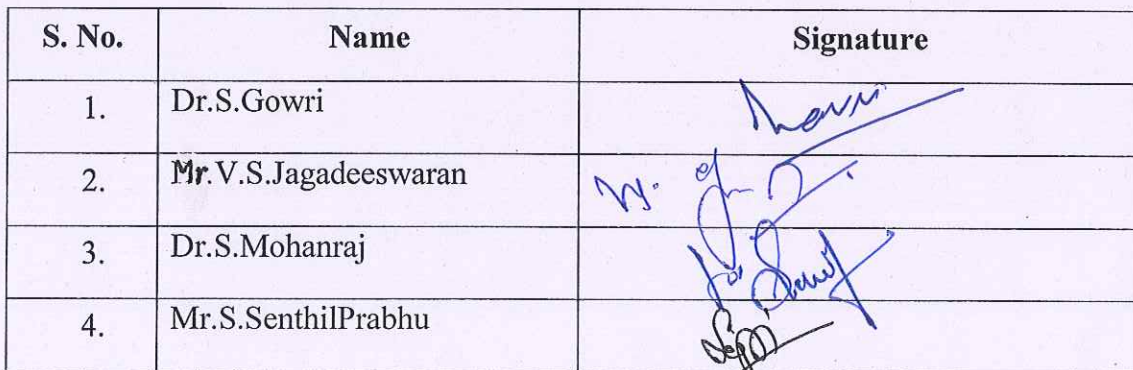 S. No. Name Signature
1. Dr.S.Gowri
2. Mr.V.S.Jagadeeswaran
3. Dr.S.Mohanraj
4. Mr.S.SenthilPrabhu